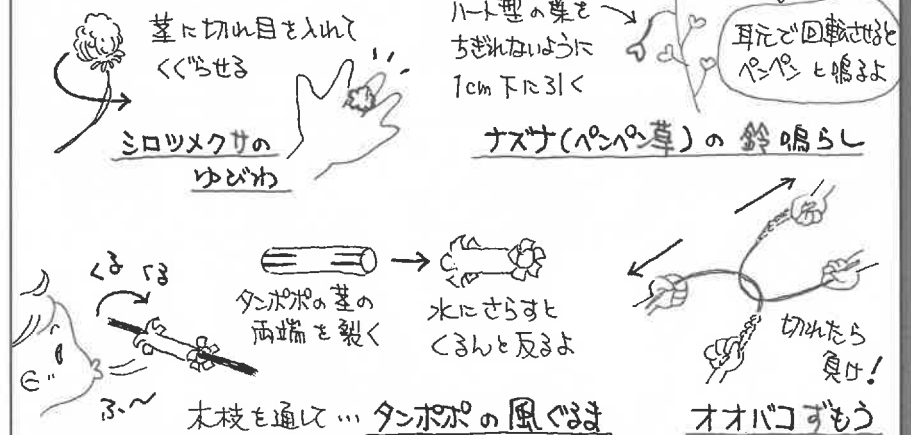 茎に切れ目を入れて
くぐらせる
シロツメクサの
ゆびわ
ハート型の葉を
ちぎれないように
1cm下に引く
耳元で回転させると
ペンペンと鳴るよ
ナズナ(ペンペン草)の鈴鳴らし
くる くる
ふぃ〜
タンポポの茎の
両端を裂く
水にさらすと
くるんと反るよ
木枝を通して… タンポポの風ぐるま
切れたら
負け!
オオバコずもう